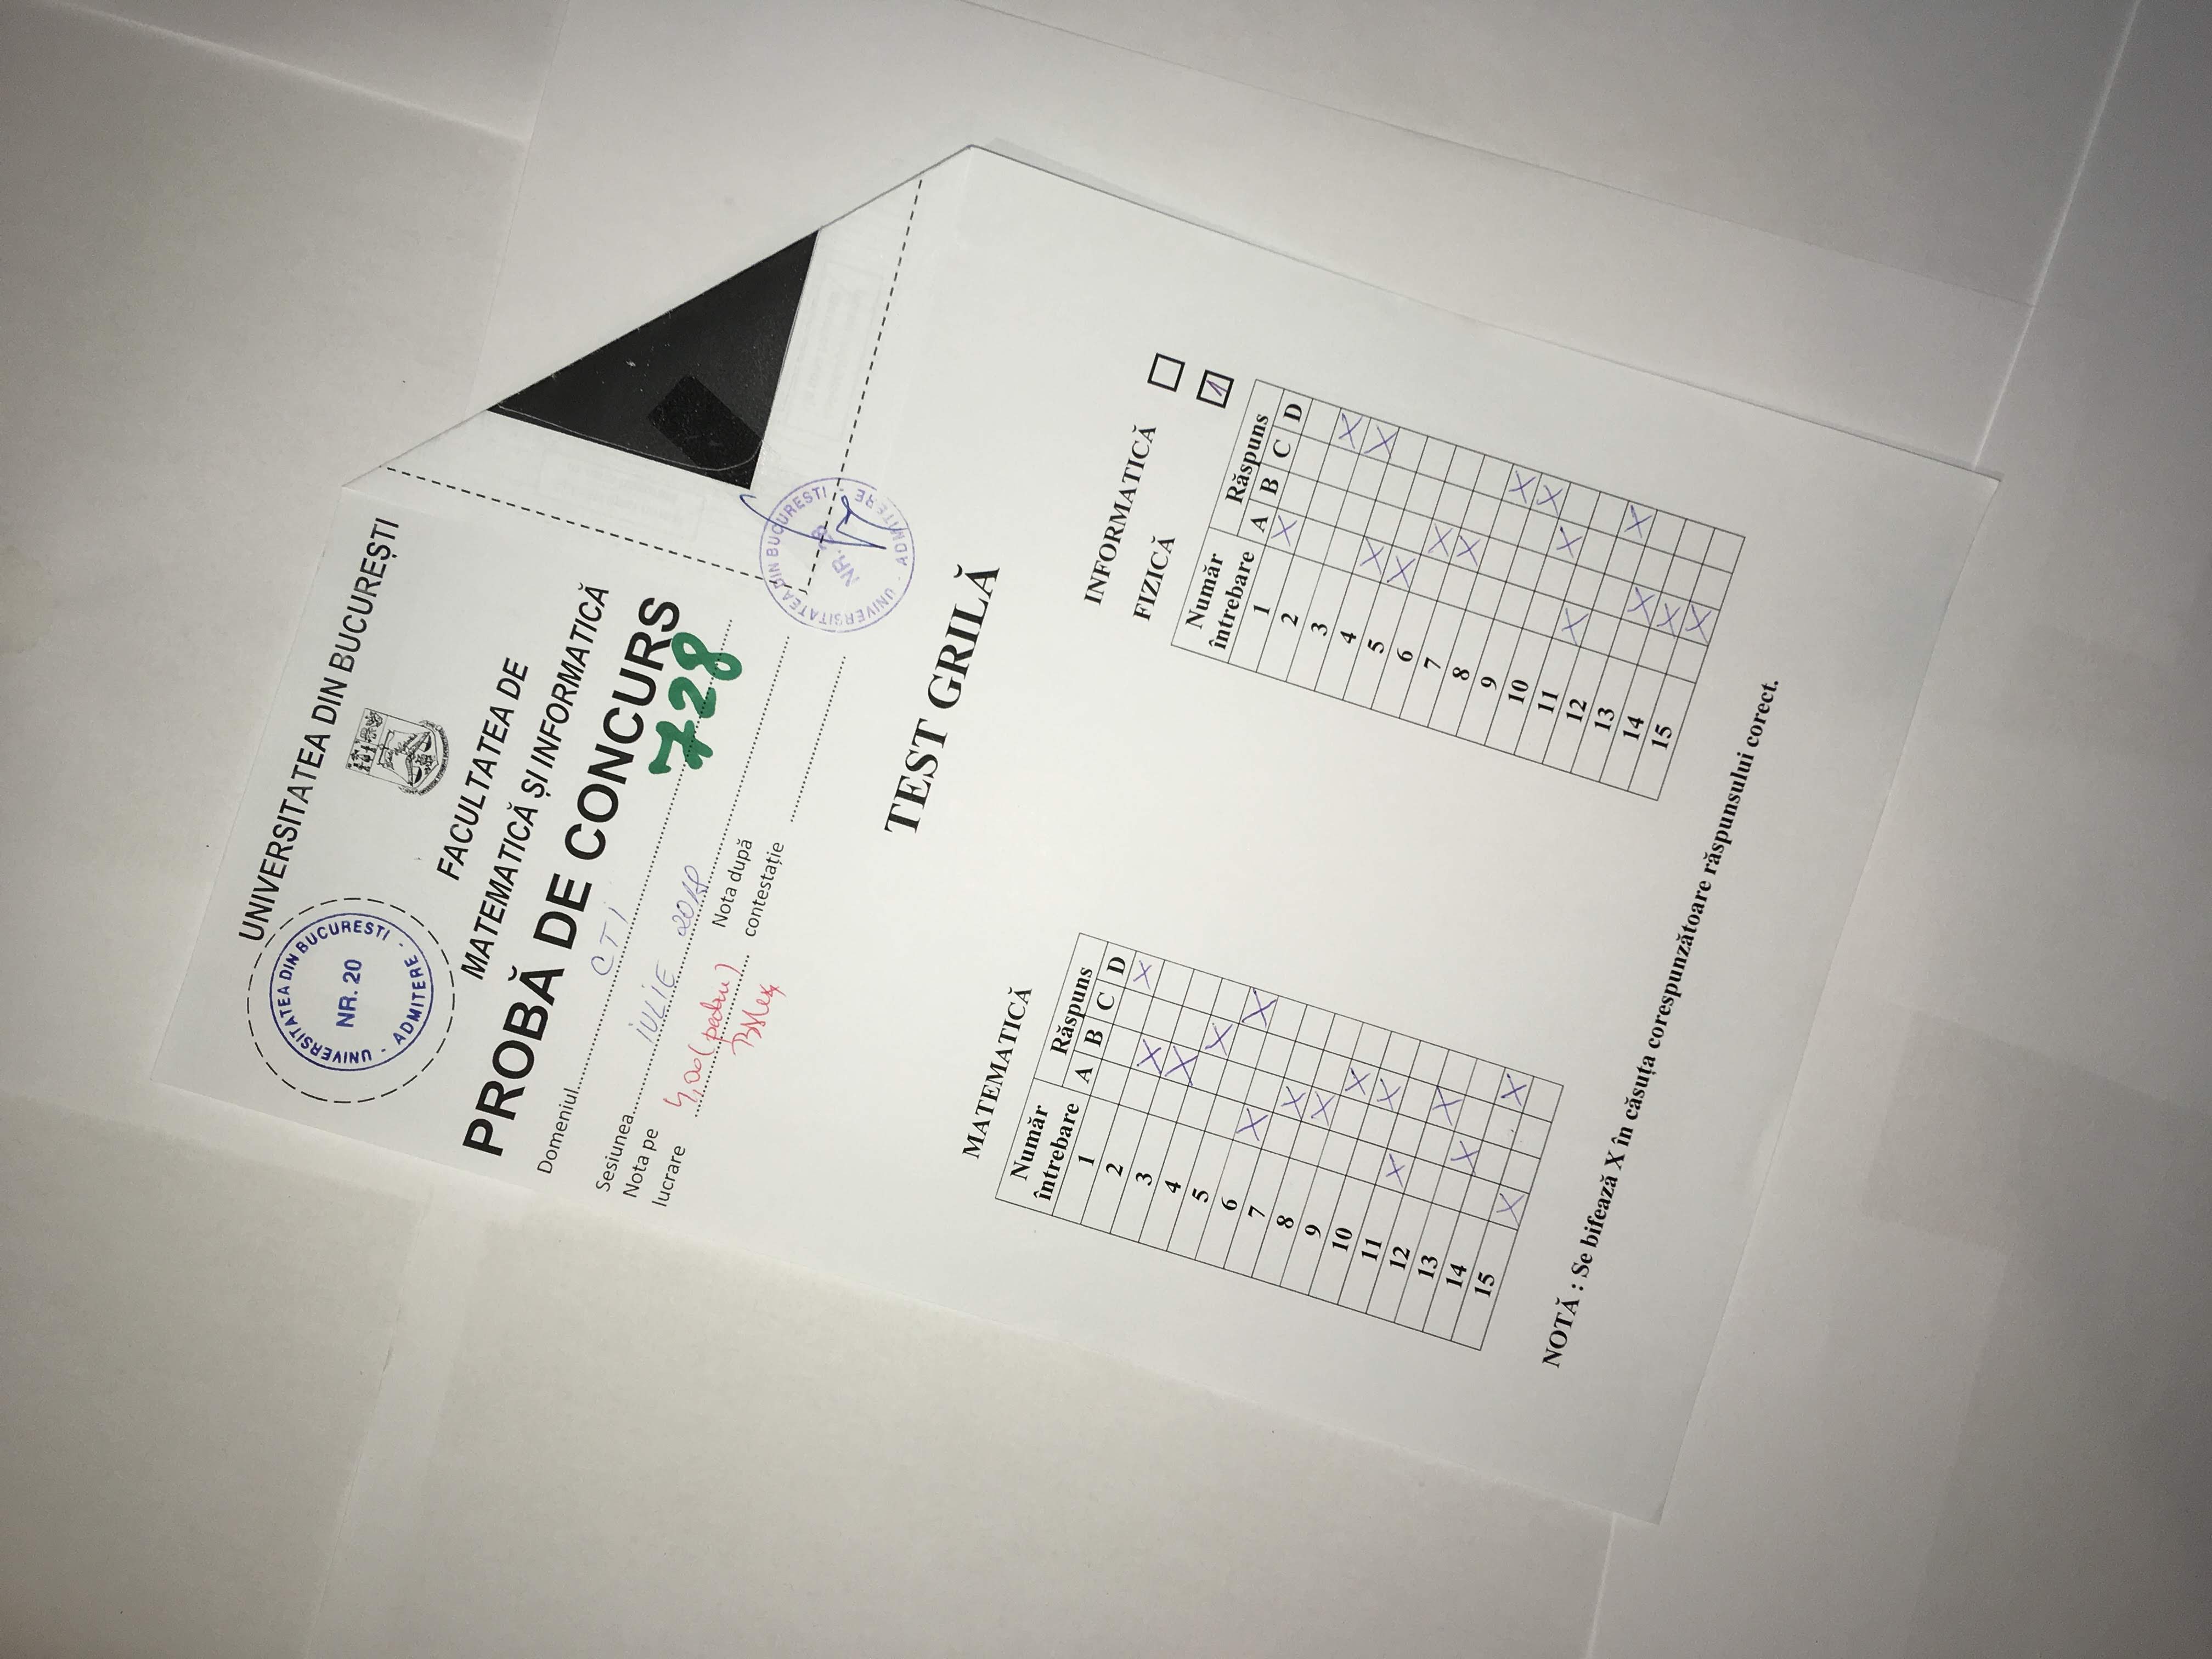 UNIVERSITATEA DIN BUCUREȘTI
UNIVERSITATEA DIN BUCURESTI
NR. 20
- ADMITERE -
FACULTATEA DE
MATEMATICĂ ȘI INFORMATICĂ
PROBĂ DE CONCURS
Domeniul CTI
728
Sesiunea IULIE 2018
Nota pe
lucrare 4,00 (patru)
Nota după
contestație
UNIVERSITATEA DIN BUCURESTI
NR.
ADMITERE
TEST GRILĂ
MATEMATICĂ
Număr
întrebare
Răspuns
A B C D
1 X
2 X
3 X
4 X
5 X
6 X
7 X
8 X
9 X
10 X
11 X
12 X
13 X
14 X
15 X
INFORMATICĂ
FIZICĂ 1
Număr
întrebare
Răspuns
A B C D
1 X
2 X
3 X
4 X
5 X
6 X
7 X
8 X
9 X
10 X
11 X
12 X
13 X
14 X
15 X
NOTĂ : Se bifează X în căsuța corespunzătoare răspunsului corect.